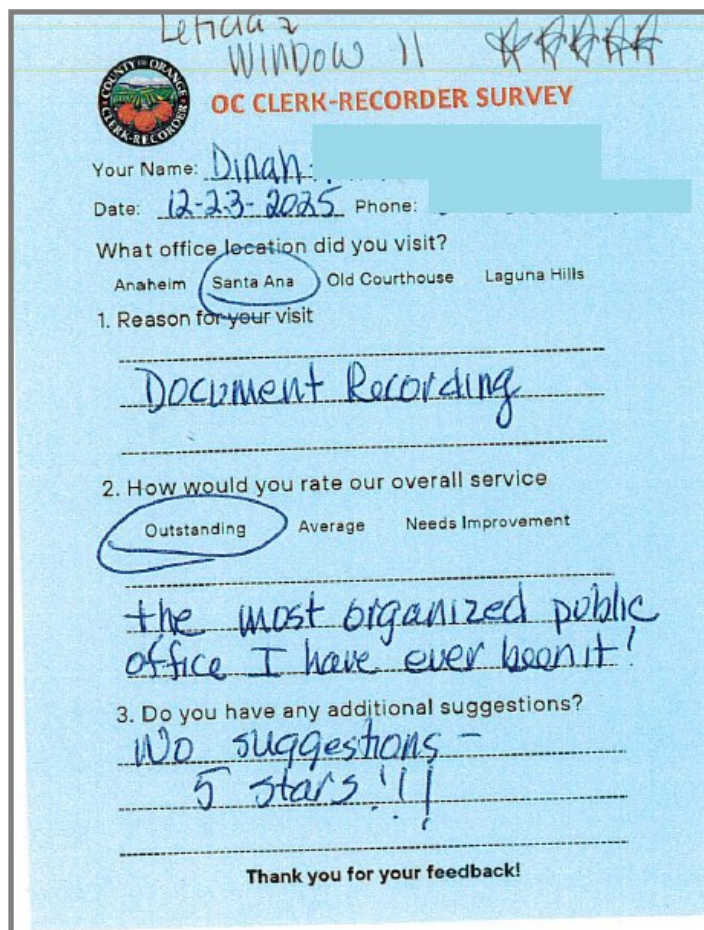 Leticia z
WINDOW 11
COUNTY OF ORANGE
CLERK-RECORDER
OC CLERK-RECORDER SURVEY
Your Name: Dinah
Date: 12-23-2025 Phone:
What office location did you visit?
Anaheim Santa Ana Old Courthouse Laguna Hills
1. Reason for your visit
Document Recording
2. How would you rate our overall service
Outstanding Average Needs Improvement
the most organized public
office I have ever been it!
3. Do you have any additional suggestions?
No suggestions -
5 stars!!!
Thank you for your feedback!